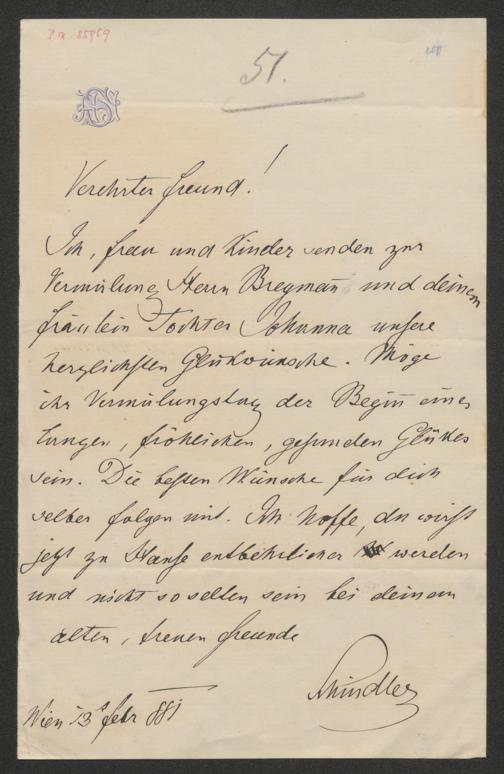 51.
Verehrter Freund!
Ich, Frau und Kinder senden zur
Vermälung Herrn Bregman̄ und deinem
Fräulein Tochter Johanna unsere
herzlichsten Glükwünsche. Möge
ihr Vermälungstag der Begin̄ eines
langen, fröhlichen, gesunden Glükes
sein. Die besten Wünsche für dich
selber folgen mit. Ich hoffe, du wirst
jetzt zu Hause entbehrlicher werden
und nicht so selten sein bei deinem
alten, treuen Freunde
Schindler
Wien 13 Febr 881